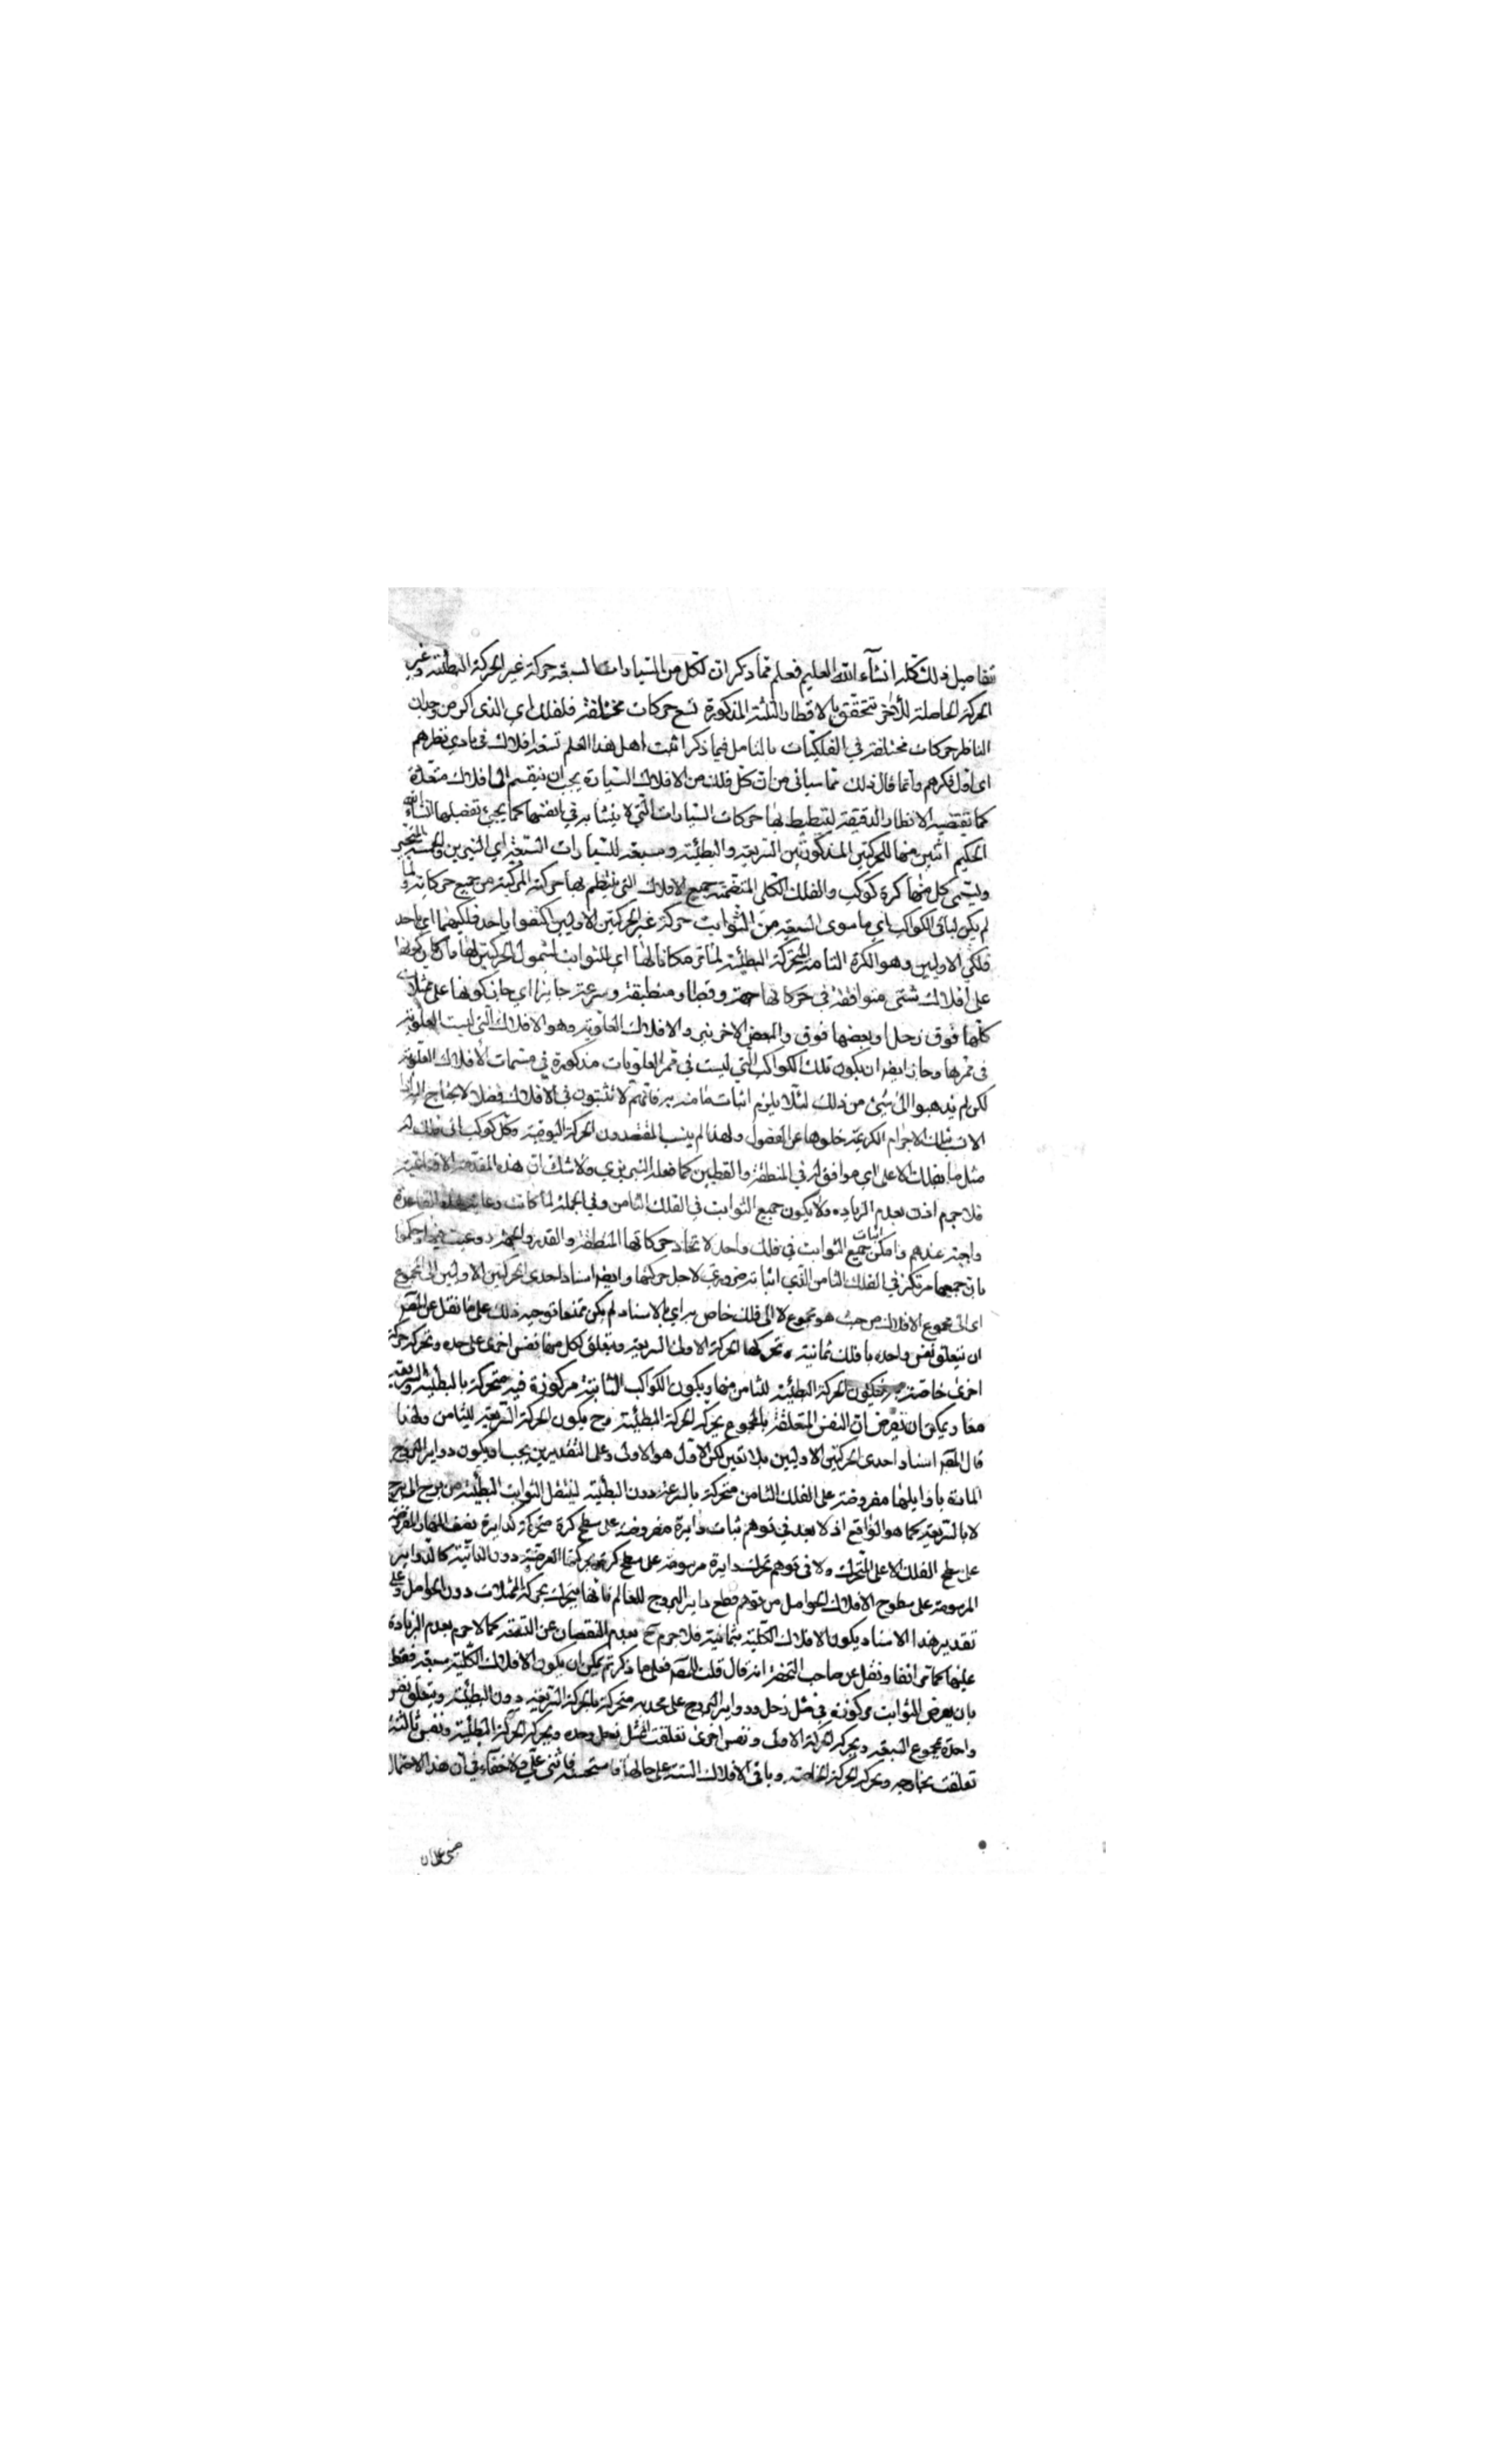 تفاصيل ذلك كله انشآء الله العليم فعلم مما ذكر ان لكل من السيارات السبعة حركة غير الحركة البطيئة وغير
الحركة الحاصلة للأخر تتحقق بالاقطار الثلثة المذكورة تسع حركات مختلفة فلذلك اي للذي اكر من وجدان
الناظر حركات مختلفة في الفلكيات بالتامل فيما ذكر اثبت اهل هذا العلم تسعة افلاك في بادي نظرهم
اى اول فكرهم وانما قال ذلك لما سياتي من ان كل فلك من الافلاك السيارة يجب ان ينقسم الى افلاك متعددة
كما تقتضيه الانظار الدقيقة لينضبط بها حركات السيارات التي لا يتشابه في انفسها كما يجئ تفصيلها انشاء الله
الحكيم اثنين منها للحركتين المذكورتين السريعة والبطيئة وسبعة للسيارات السبعة اي النيرين والخمسة المتحيرة
ويسمى كل منها كرة كوكب والفلك الكلى المتضمنة جميع الافلاك التى ينتظم بها حركته المركبة من جميع حركاته ولما
لم يكن لباقى الكواكب اي ما سوى السبعة من الثوابت حركة غير الحركتين الاوليين اكتفوا باحد فلكيهما اي باحد
فلكي الاوليين وهو الكرة الثامنة المتحركة البطيئة لما مر مكانا لها اى للثوابت لشمول الحركتين لها وان كان كونها
على افلاك شتى متوافقة في حركاتها جهة وقطبا ومنطبقة وسرعة جايزا اي جاز كونها على
كلها فوق زحل او بعضها فوق والبعض الاخر بين والافلاك العلوية وهو الافلاك التي ليست العلوية
في قمرها وجاز ايضا ان يكون تلك الكواكب التي ليست في قمر العلويات مذكورة في متممات الافلاك العلوية
لكن لم يذهبوا الى شئ من ذلك لئلا يلزم اثبات ما منه بد فانهم لا يثبتون في الافلاك فضلا لا يحتاج اليه اذ
الانسب بتلك الاجرام الكريمة خلوها عن الفضول ولهذا لم ينسب المقتصدون الحركة اليومية وكل كوكب الى فلك له
مثل ما بفلك الاعلى اي موافق له في المنطقة والقطبين كما فعله النيريزي ولا شك ان هذه المقدمة الاقناعية
فلا جرم اذن بعدم الزيادة ولا يكون جميع الثوابت في الفلك الثامن وفي الجملة لما كانت رعاية هذه القاعدة
واجبة عندهم وامكن اثبات جميع الثوابت في فلك واحد لاتحاد حركاتها المنطقة والقدر والجهة وحكموا
بان جميعها مرتكز في الفلك الثامن الذي اثباته ضروري لاجل حركتها وايضا اسناد احدى الحركتين الاوليين الى المجموع
اى الى مجموع الافلاك من حيث هو مجموع لا الى فلك خاص به اي بالاسناد لم يكن ممتنعا توجيه ذلك على ما نقل عن المص
ان يتعلق نفس واحده بافلاك ثمانية تحركها الحركة الاولى السريعة ويتعلق لكل منها نفس اخرى على حده وتحركه حركة
اخرى خاصة به فيكون الحركة البطيئة للثامن منها ويكون الكواكب الثابتة مركوزة فيه متحركة بالبطيئة والسريعة
معا ويمكن ان نفرض ان النفس المتعلقة بالمجموع يحركه الحركة البطيئة وح يكون الحركة السريعة للثامن ولهذا
قال المص اسناد احدى الحركتين الاوليين بلا تعيين لكن الاول هو الاولى وعلى التقديرين يجب ان يكون دواير البروج
المارة باوايلها مفروضة على الفلك الثامن متحركة بالسرعة دون البطيئة لينتقل الثوابت البطيئة من برج الى برج
لا بالسريعة كما هو الواقع اذ لا بعد في توهم ثبات دايرة مفروضة على سطح كرة متحركة كدايرة نصف النهار المفروضة
على سطح الفلك الاعلى المتحرك ولا في توهم تحرك دايرة مرسومة على سطح كرة بحركتها العرضية دون الذاتية كالدواير
المرسومة على سطوح الافلاك الحوامل من توهم قطع داير البروج للعالم فانها يتحرك بحركة الممثلات دون الحوامل وعلى
تقدير هذا الاسناد يكون الافلاك الكلية ثمانية فلا جرم ح بعدم النقصان عن التسعة كما لا جرم بعدم الزيادة
عليها كما مر انفا ونقل عن صاحب التحفة انه قال قلت للمص فعلى ما ذكرتم يمكن ان يكون الافلاك الكلية سبعة فقط
بان يفرض الثوابت مركوزة في ممثل زحل ودواير البروج على محدبه متحركة بالحركة السريعة دون البطيئة ويتعلق نفس
واحدة بمجموع السبعة ويحركه الحركة الاولى ونفس اخرى تعلقت بممثل زحل وحده ويحركه الحركة البطيئة ونفس ثالثة
تعلقت بخارجه ويحركه الحركة الخاصة وباقى الافلاك الستة على حالها فاستحسنه فاثنى علي ولا خفاء في ان هذا الاحتمال